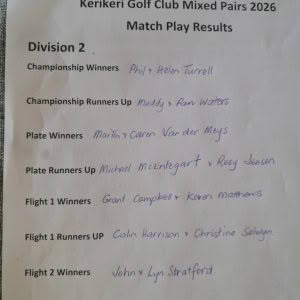 Kerikeri Golf Club Mixed Pairs 2026
Match Play Results
Division 2
Championship Winners Phil & Helen Turrell
Championship Runners Up Maddy & Pam Waters
Plate Winners Martin & Caren Van der Meys
Plate Runners Up Michael McEntegart & Rosy Jensen
Flight 1 Winners Grant Campbell & Karen Matthews
Flight 1 Runners UP Colin Harrison & Christine
Flight 2 Winners John & Lyn Stratford